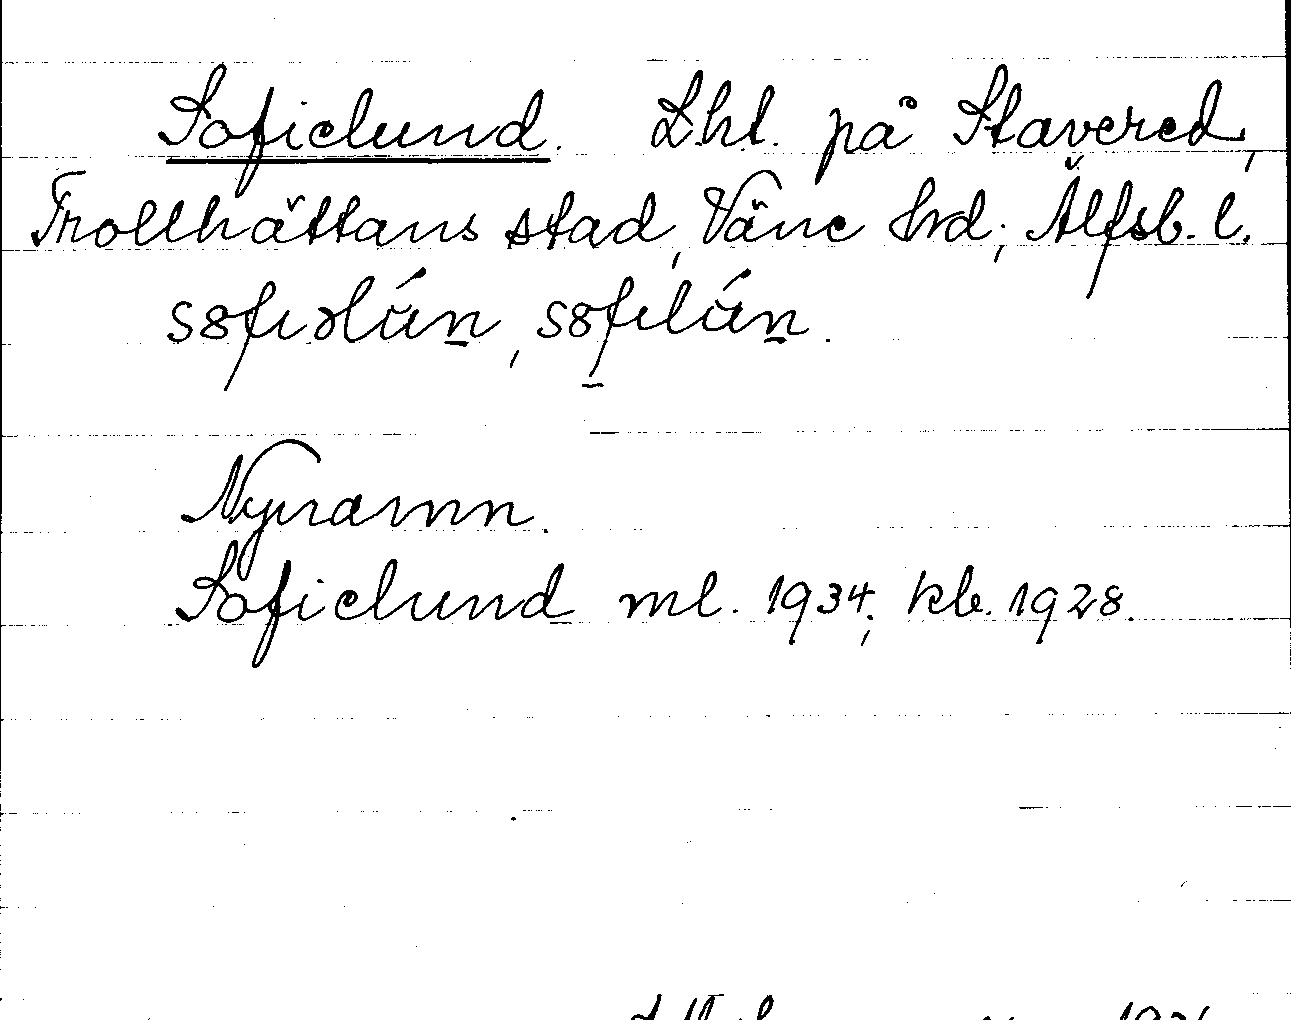 Sofielund. Lht. på Stavered,
Trollhättans stad, Väne hrd; Älfsb. l.
Nynamn.
Sofielund ml. 1934; kb. 1928.